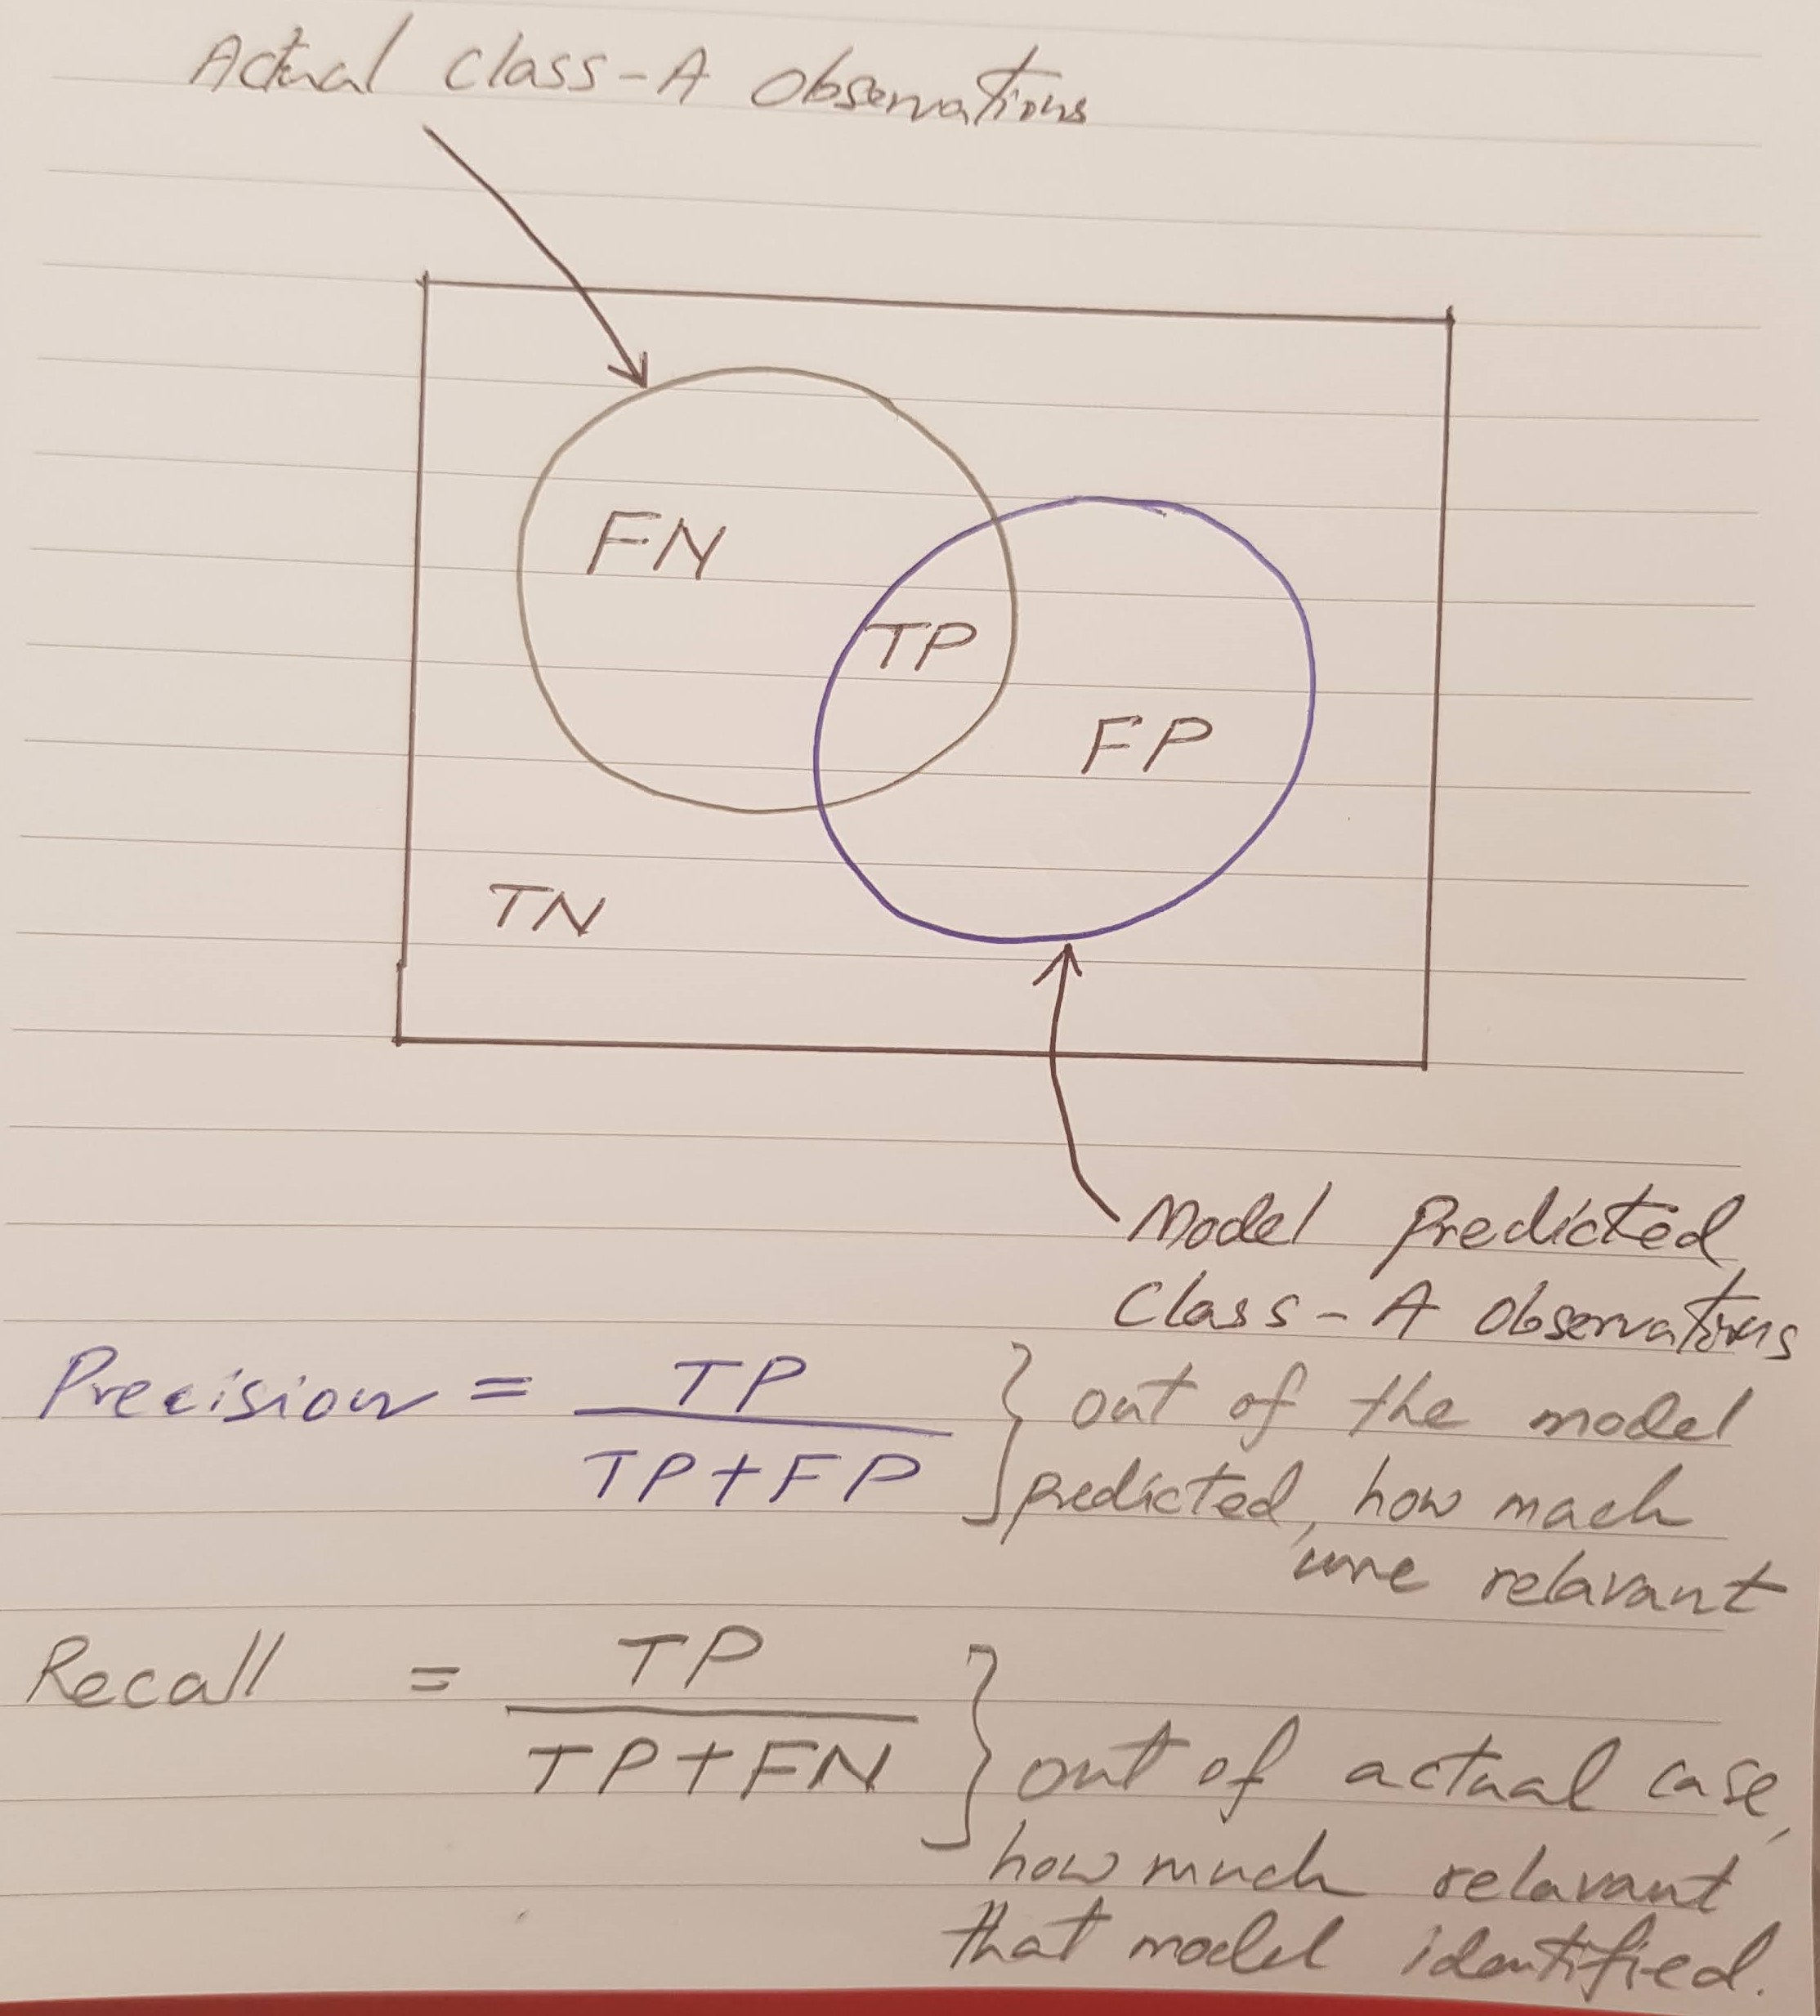 Actual class-A Observations
FN
TP
FP
TN
Model Predicted
Class-A Observations
Precision = TP
TP+FP
} out of the model
predicted, how mach
were relavant
Recall = TP
TP+FN
} out of actual case,
how much relavant
that model identified.